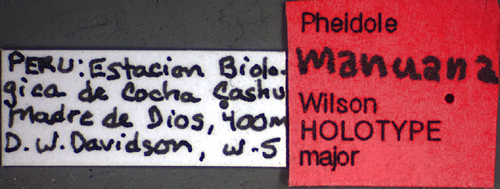 PERU: Estacion Biolo-
gica de Cocha Cashu
Madre de Dios, 400m
D.W. Davidson, W-5
Pheidole
manuana
Wilson
HOLOTYPE
major